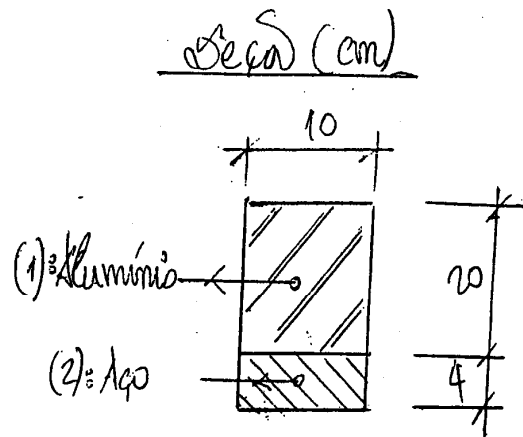 Seção (cm)
10
(1): Alumínio
20
(2): Aço
4